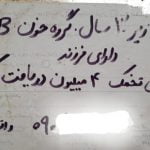 زیر ۳۰ سال، گروه خون B
دارای فرزند
تخمک ۴ میلیون دریافت
۰۹۰